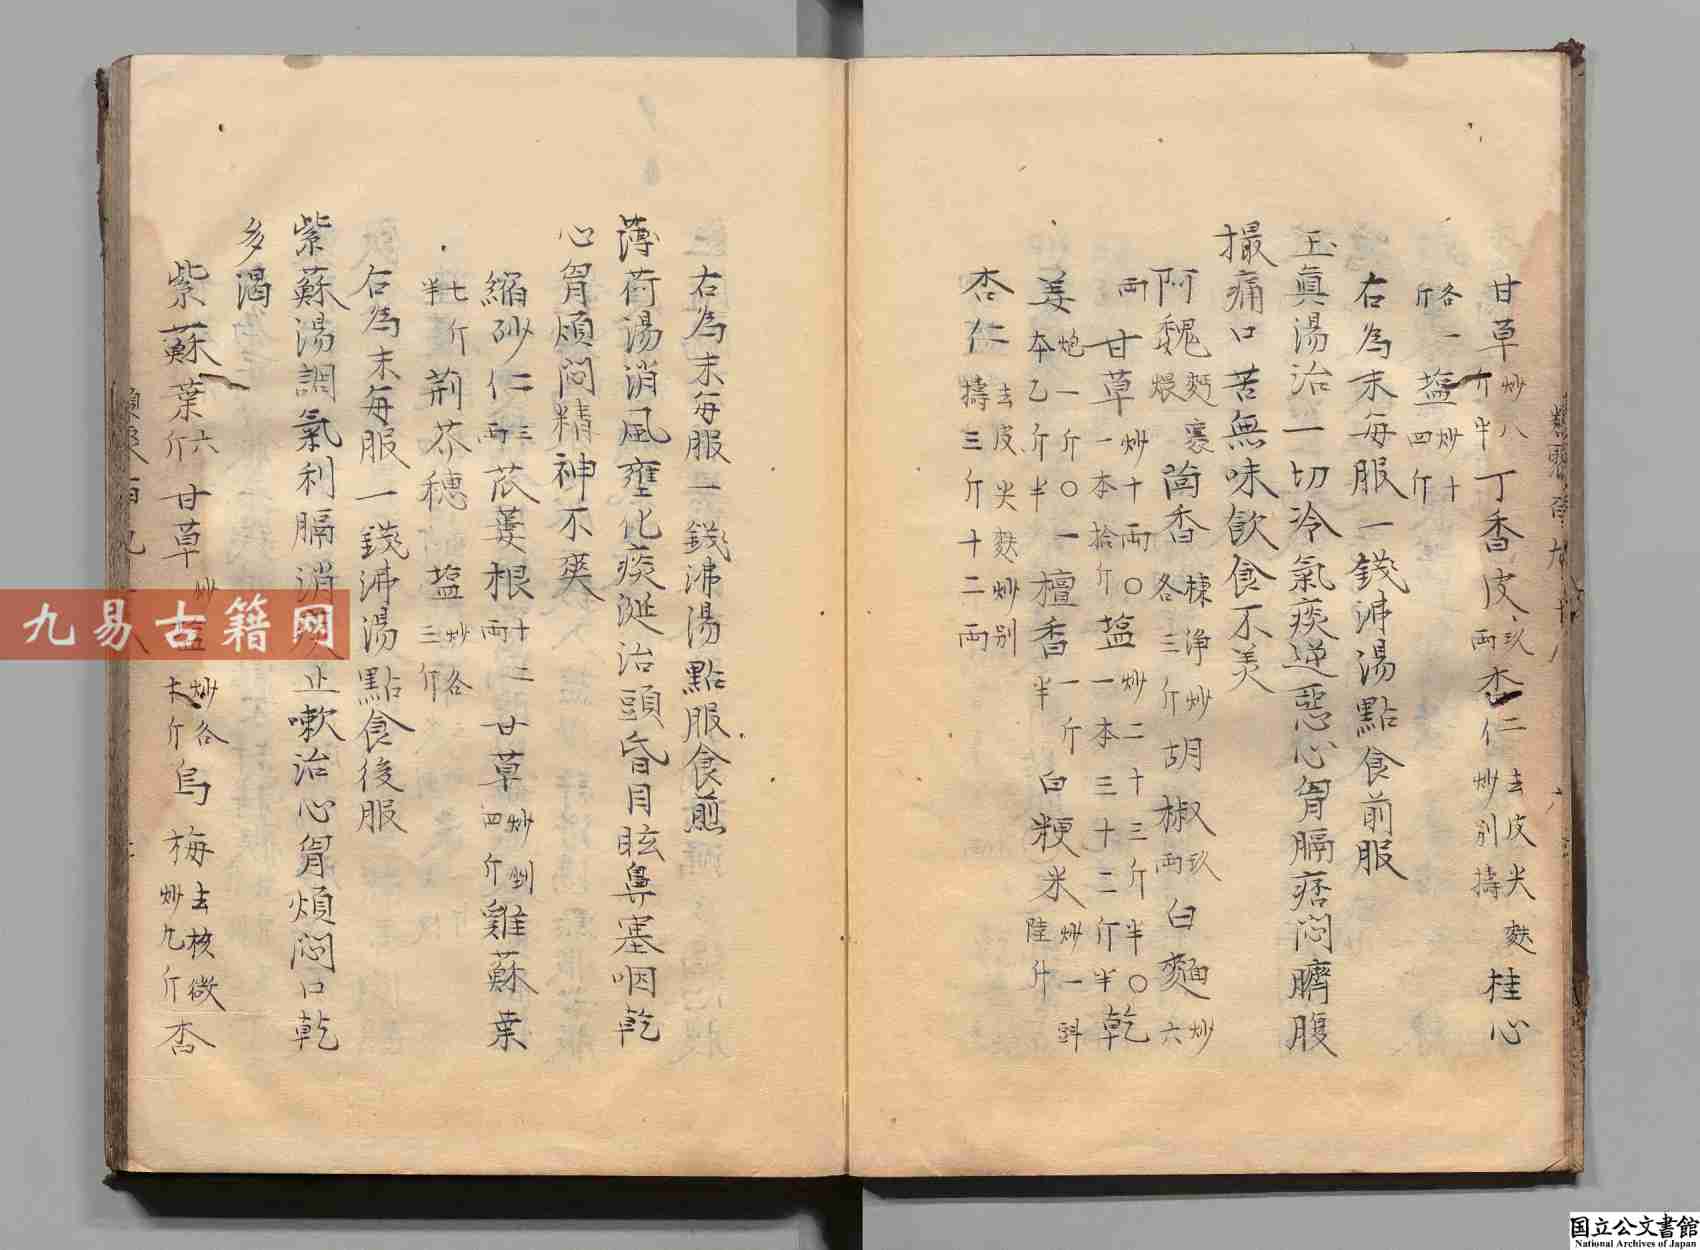 甘草炒八斤半丁香皮玖兩杏仁二去皮尖麩炒別擣桂心
各一斤塩炒十四斤
右為末每服一錢沸湯點食前服
玉真湯治一切冷氣痰逆惡心胷膈痞悶臍腹
撮痛口苦無味飲食不美
阿魏麪裹煨茴香揀浄炒各三斤胡椒玖兩白麵炒六
兩甘草炒十兩〇一本拾斤塩炒二十三斤半〇一本三十二斤半乾
姜炮一斤〇一本乙斤半檀香一斤半白粳米炒一斗陸升
杏仁去皮尖麩炒別擣三斤十二兩
右為末每服一錢沸湯點服食前
薄荷湯消風壅化痰涎治頭昏目眩鼻塞咽乾
心胷煩悶精神不爽
縮砂仁三兩苽蔞根十二兩甘草炒剉四斤雞蘇葉
七斤半荊芥穗塩炒各三斤
右為末每服一錢沸湯點食後服
紫蘇湯調氣利膈消痰止嗽治心胷煩悶口乾
多渴
紫蘇葉六斤甘草炒塩炒各六斤烏梅去核微炒九斤杏
九易古籍网
国立公文書館
National Archives of Japan